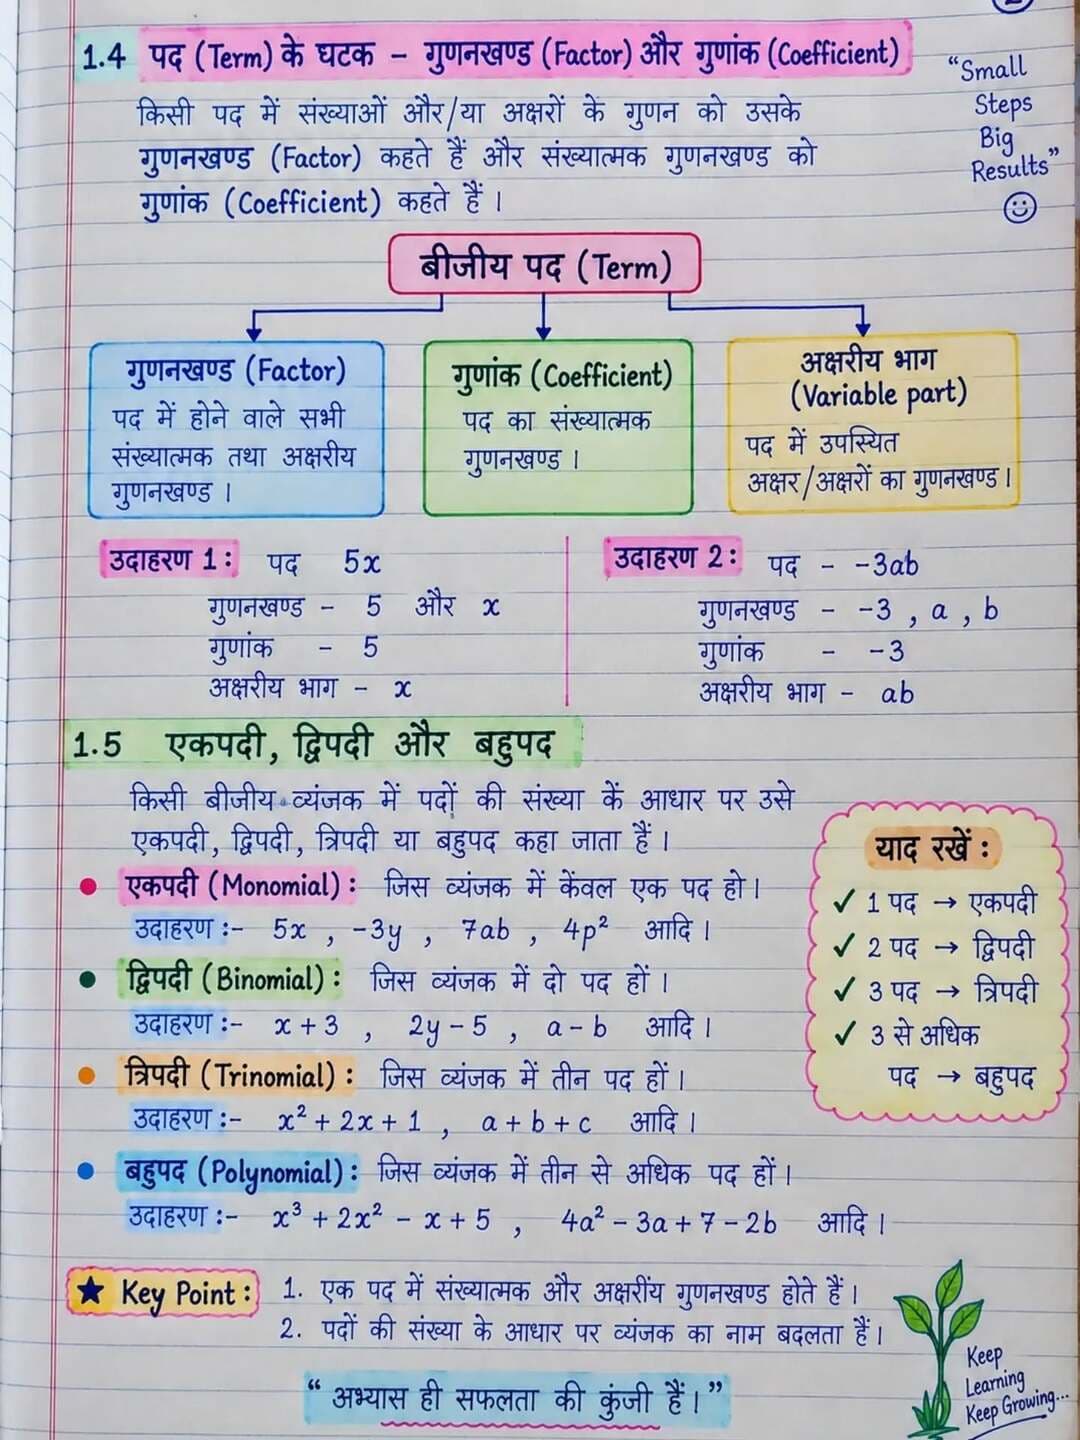 1.4 पद (Term) के घटक – गुणनखण्ड (Factor) और गुणांक (Coefficient)
"Small
Steps
Big
Results"
किसी पद में संख्याओं और/या अक्षरों के गुणन को उसके
गुणनखण्ड (Factor) कहते हैं और संख्यात्मक गुणनखण्ड को
गुणांक (Coefficient) कहते हैं ।
बीजीय पद (Term)
गुणनखण्ड (Factor)
पद में होने वाले सभी
संख्यात्मक तथा अक्षरीय
गुणनखण्ड ।
गुणांक (Coefficient)
पद का संख्यात्मक
गुणनखण्ड ।
अक्षरीय भाग
(Variable part)
पद में उपस्थित
अक्षर/अक्षरों का गुणनखण्ड ।
उदाहरण 1: पद 5x
गुणनखण्ड – 5 और x
गुणांक – 5
अक्षरीय भाग – x
उदाहरण 2: पद – -3ab
गुणनखण्ड – -3 , a , b
गुणांक – -3
अक्षरीय भाग – ab
1.5 एकपदी, द्विपदी और बहुपद
किसी बीजीय व्यंजक में पदों की संख्या कें आधार पर उसे
एकपदी, द्विपदी, त्रिपदी या बहुपद कहा जाता हैं ।
• एकपदी (Monomial): जिस व्यंजक में केंवल एक पद हो ।
उदाहरण :- 5x , -3y , 7ab , 4p² आदि ।
• द्विपदी (Binomial): जिस व्यंजक में दो पद हों ।
उदाहरण :- x + 3 , 2y – 5 , a – b आदि ।
• त्रिपदी (Trinomial): जिस व्यंजक में तीन पद हों ।
उदाहरण :- x² + 2x + 1 , a + b + c आदि ।
• बहुपद (Polynomial): जिस व्यंजक में तीन से अधिक पद हों ।
उदाहरण :- x³ + 2x² – x + 5 , 4a² – 3a + 7 – 2b आदि ।
याद रखें :
✓ 1 पद → एकपदी
✓ 2 पद → द्विपदी
✓ 3 पद → त्रिपदी
✓ 3 से अधिक
पद → बहुपद
★ Key Point : 1. एक पद में संख्यात्मक और अक्षरींय गुणनखण्ड होते हैं ।
2. पदों की संख्या के आधार पर व्यंजक का नाम बदलता हैं ।
" अभ्यास ही सफलता की कुंजी हैं । "
Keep
Learning
Keep Growing...